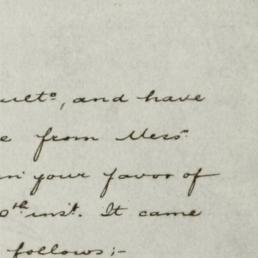 and have
from Mess^rs
your favor of
inst. It came
follows;-